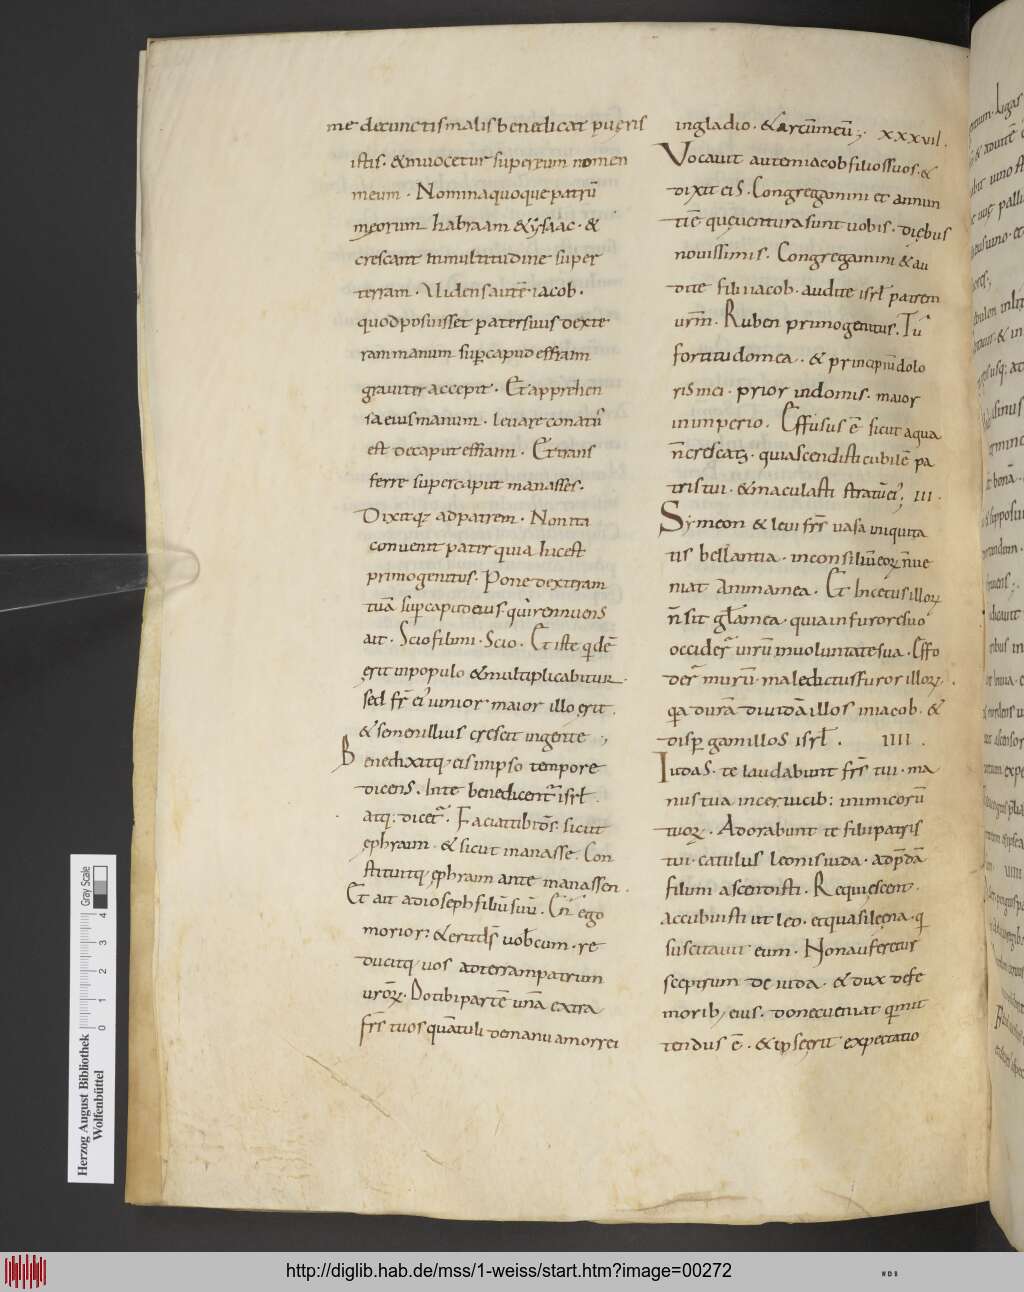 me decunctis malis benedicat pueris
istis · & inuocetur super eum nomen
meum · Nomina quoque patrū
meorum habraam & ysaac · &
crescant in multitudine super
terram · Uidens autē iacob ·
quod posuisset pater suus dexte
ram manum sup caput effraim
grauiter accepit · Et apprehen
sa eius manum · leuare conatur
est decapite effraim · Et trans
ferre super caput manasses ·
Dixitq; ad patrem · Non ita
conuenit pater quia hic est
primogenitus · Pone dexteram
tuā sup caput eius · qui rennuens
ait · Scio fili mi · Scio · Et iste qidē
erit in populo & multiplicabitur ·
sed fr̄ ei' iunior maior illo erit ·
& semen illius crescit ingente ·,
Benedixitq; eis in ipso tempore
dicens · In te benedicent' isrł ·
atq: dicet' · Faciat tibi dō̄s · sicut
ephraim · & sicut manasse · Con
stituitq; ephraim ante manassen ·
Et ait ad ioseph filiū suū · En ego
morior : & erit ds̄ uobcum · re
ducitq; uos ad terram patrum
urōrꝝ · Do tibi partē unā extra
frs̄ tuos quā tuli de manu amorrei
in gladio · & arcū meū ; · xxxvii ·
Vocauit autem iacob filios suos · &
dixit eis · Congregamini et annun
tiē que uentura sunt uobis · diebus
nouissimis · Congregamini & au
dite filii iacob · audite isrł patrem
urm̄ · Ruben primogenitus · Tū
fortitudo mea · & principiū dolo
ris mei · prior in donis · maior
in inperio · Effusus ē sicut aqua
n̄ crescas · quia scendisti cubilē pa
tris tui · & maculasti stratū ei' ; III ·
Symeon & leui frs̄ uasa iniquita
tis bellantia · in consiliū eorꝝ n̄ ue
niat anima mea · Et in cetus illorꝝ
n̄ sit glā mea · quia in furore suo
occider̄ uirū in uoluntate sua · Effo
der̄ murū · maledictus furor illorꝝ ·
qa dura diuidā illos in iacob · &
dispgam illos isrł · IIII ·
Iudas · te laudabunt frs̄ tui · ma
nus tua in ceruicib: inimicorū
tuorꝝ · Adorabunt te filii patris
tui · catulus leonis iuda · ad pdā
filimi ascendisti · Requiescens ·
accubuisti ut leo · et quasi leena · q
suscitauit eum · Non auferetur
sceptrum de iuda · & dux defe
morib; eius · donec ueniat q mit
tendus ē · & ipse erit expectatio
Herzog August Bibliothek
Wolfenbüttel
0 1 2 3 4
Gray Scale
http://diglib.hab.de/mss/1-weiss/start.htm?image=00272